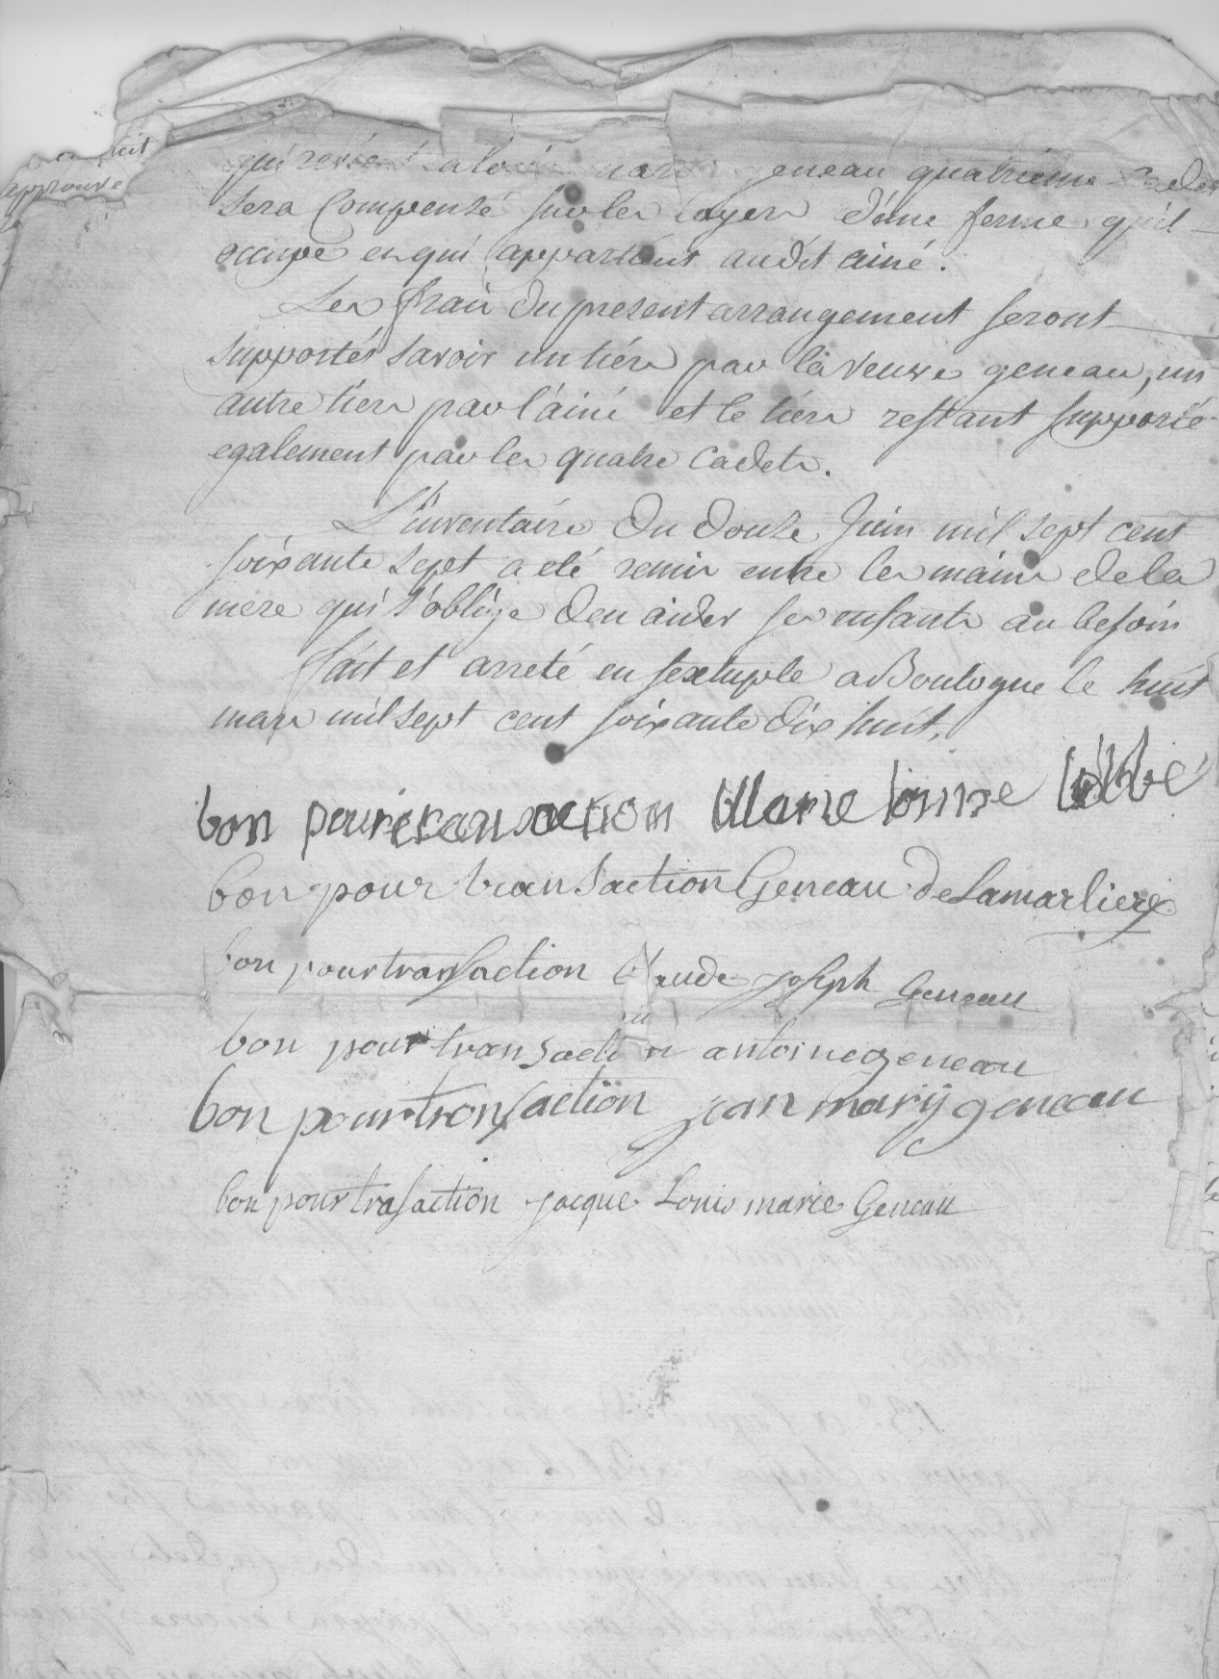 approuvé
qui geneau quatrieme cadet
sera Compensé sur les loyers d'une ferme qu'il
occupe et qui appartient audit ainé.
Les frais du present arrangement seront
supportés savoir un tiers par la veuve geneau, un
autre tiers par l'ainé et le tiers restant supporté
egalement par les quatre cadets.
L'inventaire du douze Juin mil sept cent
soixante sept a eté remis entre les mains de la
mere qui s'oblige d'en aider ses enfants au besoin
fait et arreté en sextuple a Boulogne le huit
mars mil sept cent soixante dix huit.
bon pour transaction Marie Labbé
bon pour transaction Geneau de Lamarliere
bon pour transaction Claude joseph Geneau
bon pour transaction antoine geneau
bon pour tronsaction jean marÿ geneau
bon pour trasaction jacque Louis marie Geneau